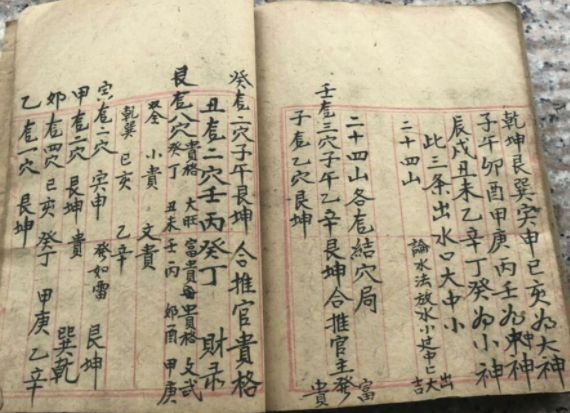 乾坤艮巽寅申巳亥为大神
子午卯酉甲庚丙壬为中神
辰戌丑未乙辛丁癸为小神
此三条出水口大中小
論水法放水小过中
出大吉
二十四山
二十四山各龙結穴局
壬龙三穴子午乙辛艮坤合推官主發富貴
子龙乙穴艮坤
癸龙二穴子午艮坤 合推官貴格
丑龙二穴壬丙癸丁 財录
艮龙八穴貴格 大旺 富貴每出貴格 文武
癸丁 丑未 壬丙 卯酉 甲庚
双全 小貴 文貴
乾巽 巳亥 乙辛
寅龙二穴 寅申 發如雷 艮坤
甲龙二穴 艮坤 貴 巽乾
卯龙四穴 巳亥 癸丁 甲庚 乙辛
乙龙一穴 艮坤